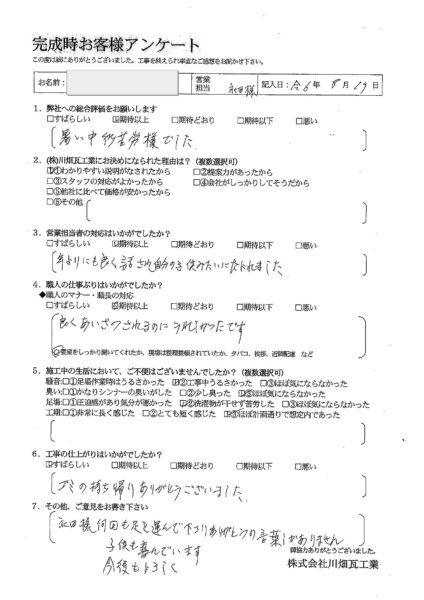 完成時お客様アンケート
この度は誠にありがとうございました。工事を終えられ率直なご感想をお聞かせ下さい。
お名前: 営業担当 永田様 記入日:令6年8月19日
1．弊社への総合評価をお願いします
□すばらしい ☑期待以上 □期待どおり □期待以下 □悪い
暑い中ご苦労様でした
2．(株)川畑瓦工業にお決めになられた理由は？（複数選択可）
☑①わかりやすい説明がなされたから □②提案力があったから
□③スタッフの対応がよかったから □④会社がしっかりしてそうだから
□⑤他社に比べて価格が安かったから
□⑥その他
3．営業担当者の対応はいかがでしたか？
□すばらしい ☑期待以上 □期待どおり □期待以下 □悪い
年よりにも良く話され自分の子供みたいに
4．職人の仕事ぶりはいかがでしたか？
◆職人のマナー・職長の対応
□すばらしい ☑期待以上 □期待どおり □期待以下 □悪い
良くあいさつされるのにうれしかったです
◎要望をしっかり聞いてくれたか、現場は整理整頓されていたか、タバコ、挨拶、近隣配慮 など
5．施工中の生活において、ご不便はございませんでしたか？（複数選択可）
騒音:□①足場作業時はうるさかった ☑②工事中うるさかった □③ほぼ気にならなかった
臭い:□①かなりシンナーの臭いがした □②少し臭った ☑③ほぼ気にならなかった
足場:□①圧迫感があり気分が悪かった ☑②洗濯物が干せず苦労した □③ほぼ気にならなかった
工期:□①非常に長く感じた □②とても短く感じた ☑③ほぼ計画通りで想定内であった
6．工事の仕上がりはいかがでしたか？
☑すばらしい □期待以上 □期待どおり □期待以下 □悪い
ゴミの持ち帰りありがとうございました
7．その他、ご意見をお書き下さい
永田様何回も足を運んで下さりありがとうの言葉しかありません
子供も喜んでいます
今後もよろしく
御協力ありがとうございました。
株式会社川畑瓦工業